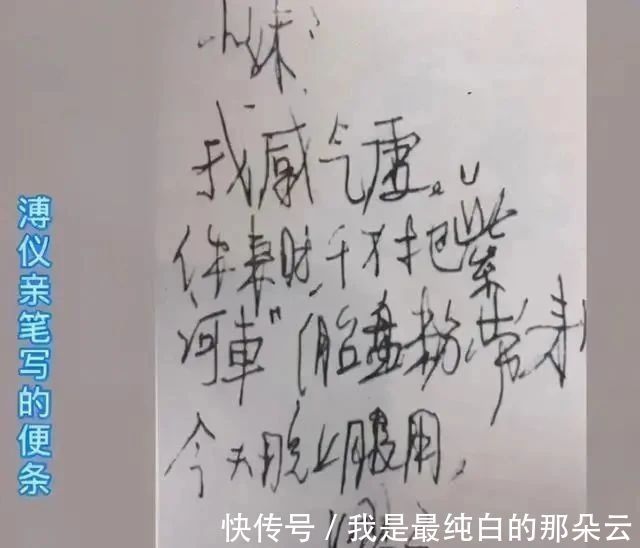 溥仪亲笔写的便条
小妹:
我感气虚。
你来时,千万把"紫
河車"(胎盘粉)带来,
今天晚上服用,
快传号/我是最纯白的那朵云